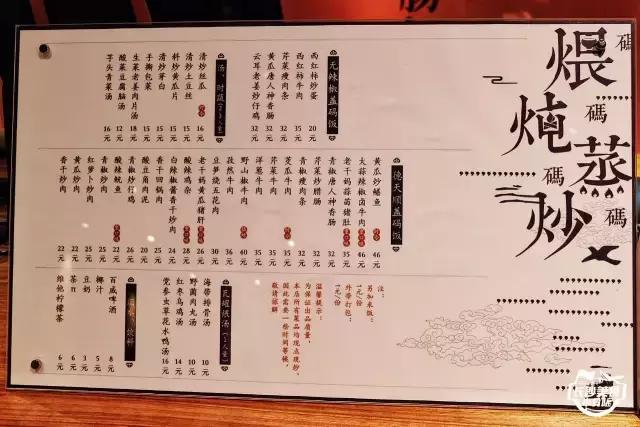 码
煨
码
炖
蒸
码
炒
码
无辣椒盖码饭
西红柿炒蛋 20元
西红柿牛肉 35元
芹菜瘦肉条 32元
黄瓜唐人神香肠 32元
云耳老姜炒仔鸡 32元
汤、时蔬(2-3人量)
清炒丝瓜 16元
清炒土豆丝 15元
料炒黄瓜片 15元
清炒芽白 15元
手撕包菜 15元
生菜老姜肉片汤 18元
酸菜豆腐脑汤 12元
芋头青菜汤 16元
德天顺盖码饭
黄瓜炒鳝鱼 46元
大蒜辣椒卤牛肉 46元
老干妈蒜苗猪肚 35元
青椒唐人神香肠 32元
芹菜炒腊肠 32元
青椒瘦肉条 32元
茭瓜牛肉 35元
芹菜牛肉 35元
洋葱牛肉 35元
野山椒牛肉 40元
孜然牛肉
豆笋烧五花肉 30元
老干妈黄瓜猪肝 26元
酸辣鸡杂 28元
白辣椒酱香干炒肉 24元
香干回锅肉 25元
酸豆角肉泥 20元
青椒炒仔鸡 25元
酸辣鱿鱼
青椒炒肉 25元
红萝卜炒肉 22元
黄瓜炒肉 22元
香干炒肉 22元
注：
另加米饭：
1元/份
外带打包：
1元/份
温馨提示：
为保证出品质量，
本店所有菜品均现点现炒，
因此需要一些时间等候，
敬请谅解
瓦罐煨汤(1人量)
海带排骨汤 10元
野菌肉丸汤 10元
红枣乌鸡汤 14元
党参虫草花水鸭汤 16元
酒水、饮料
百威啤酒 8元
椰汁 5元
豆奶 3元
茶π 6元
维他柠檬茶 6元